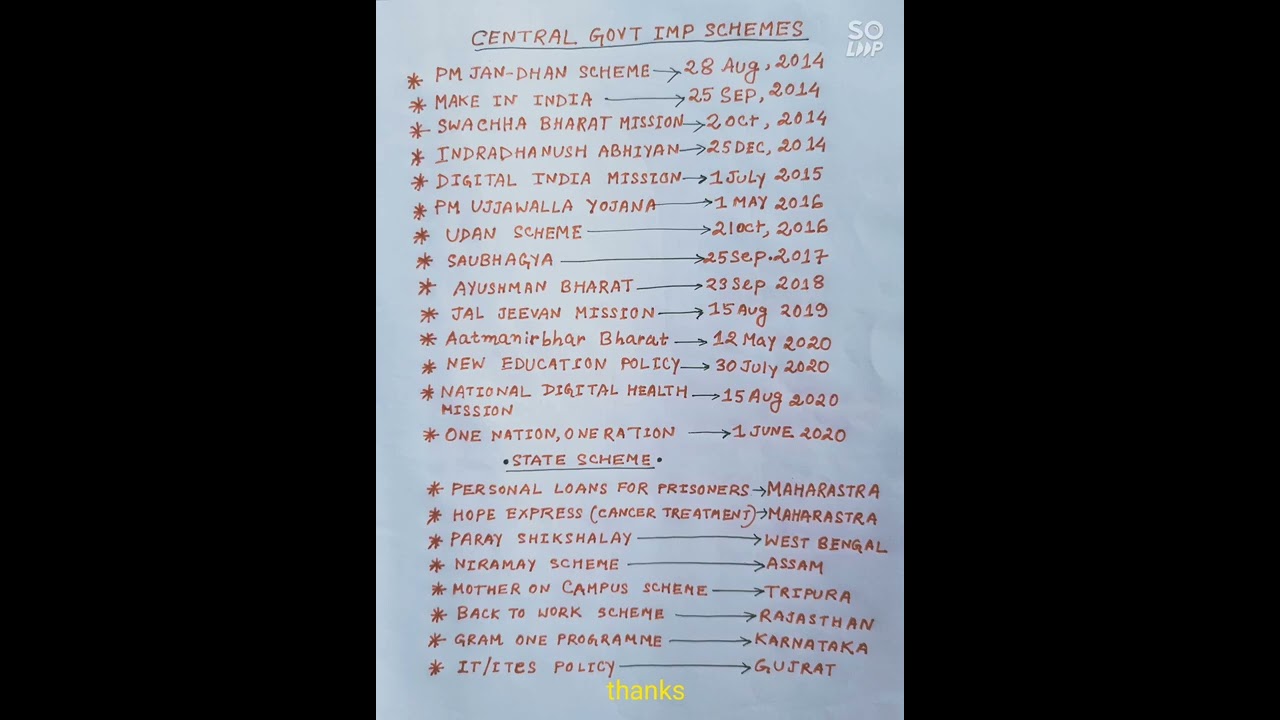 CENTRAL GOVT IMP SCHEMES
SO
LOOP
* PM JAN-DHAN SCHEME → 28 Aug, 2014
* MAKE IN INDIA → 25 SEP, 2014
* SWACHHA BHARAT MISSION → 2 Oct, 2014
* INDRADHANUSH ABHIYAN → 25 DEC, 2014
* DIGITAL INDIA MISSION → 1 JULY 2015
* PM UJJAWALLA YOJANA → 1 MAY 2016
* UDAN SCHEME → 21 oct, 2016
* SAUBHAGYA → 25 Sep. 2017
* AYUSHMAN BHARAT → 23 Sep 2018
* JAL JEEVAN MISSION → 15 Aug 2019
* Aatmanirbhar Bharat → 12 May 2020
* NEW EDUCATION POLICY → 30 July 2020
* NATIONAL DIGITAL HEALTH → 15 Aug 2020
MISSION
* ONE NATION, ONE RATION → 1 JUNE 2020
• STATE SCHEME •
* PERSONAL LOANS FOR PRISONERS → MAHARASTRA
* HOPE EXPRESS (CANCER TREATMENT) → MAHARASTRA
* PARAY SHIKSHALAY → WEST BENGAL
* NIRAMAY SCHEME → ASSAM
* MOTHER ON CAMPUS SCHEME → TRIPURA
* BACK TO WORK SCHEME → RAJASTHAN
* GRAM ONE PROGRAMME → KARNATAKA
* IT/ITES POLICY → GUJRAT
thanks